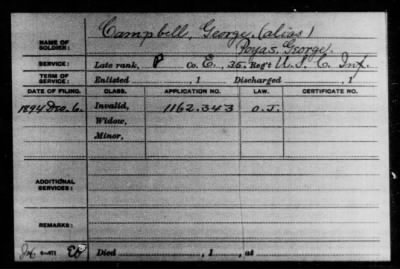 NAME OF SOLDIER: Campbell, George, (alias)
Poyas, George).
SERVICE: Late rank, P Co. E, 35, Reg't U.S.C. Inf.
TERM OF SERVICE: Enlisted , 1 Discharged , 1
DATE OF FILING. CLASS. APPLICATION NO. LAW. CERTIFICATE NO.
1894 Dec. 6. Invalid, 1162.343 O.J.
Widow,
Minor,
ADDITIONAL SERVICES:
REMARKS:
Died , 1 , at